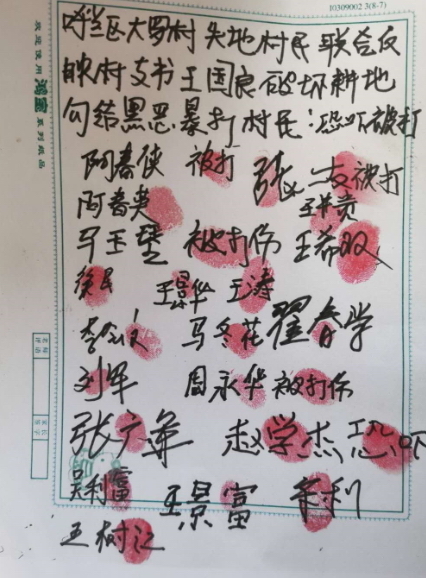 10309002 3(8-7)
呼兰区大罗村失地村民联合反
映村支书王国良破坏耕地
勾结黑恶暴打村民：恐吓被打
阿春侠 被打 张 友被打
阿春英 王井贵
马玉琴 被打伤 王希双
徐 王景华 王涛
李 马冬花 翟春学
刘军 周永华 被打伤
张广军 赵学杰 恐吓
吴利富 王景富 利
王树江
欢迎使用 鸿宝 系列纸品